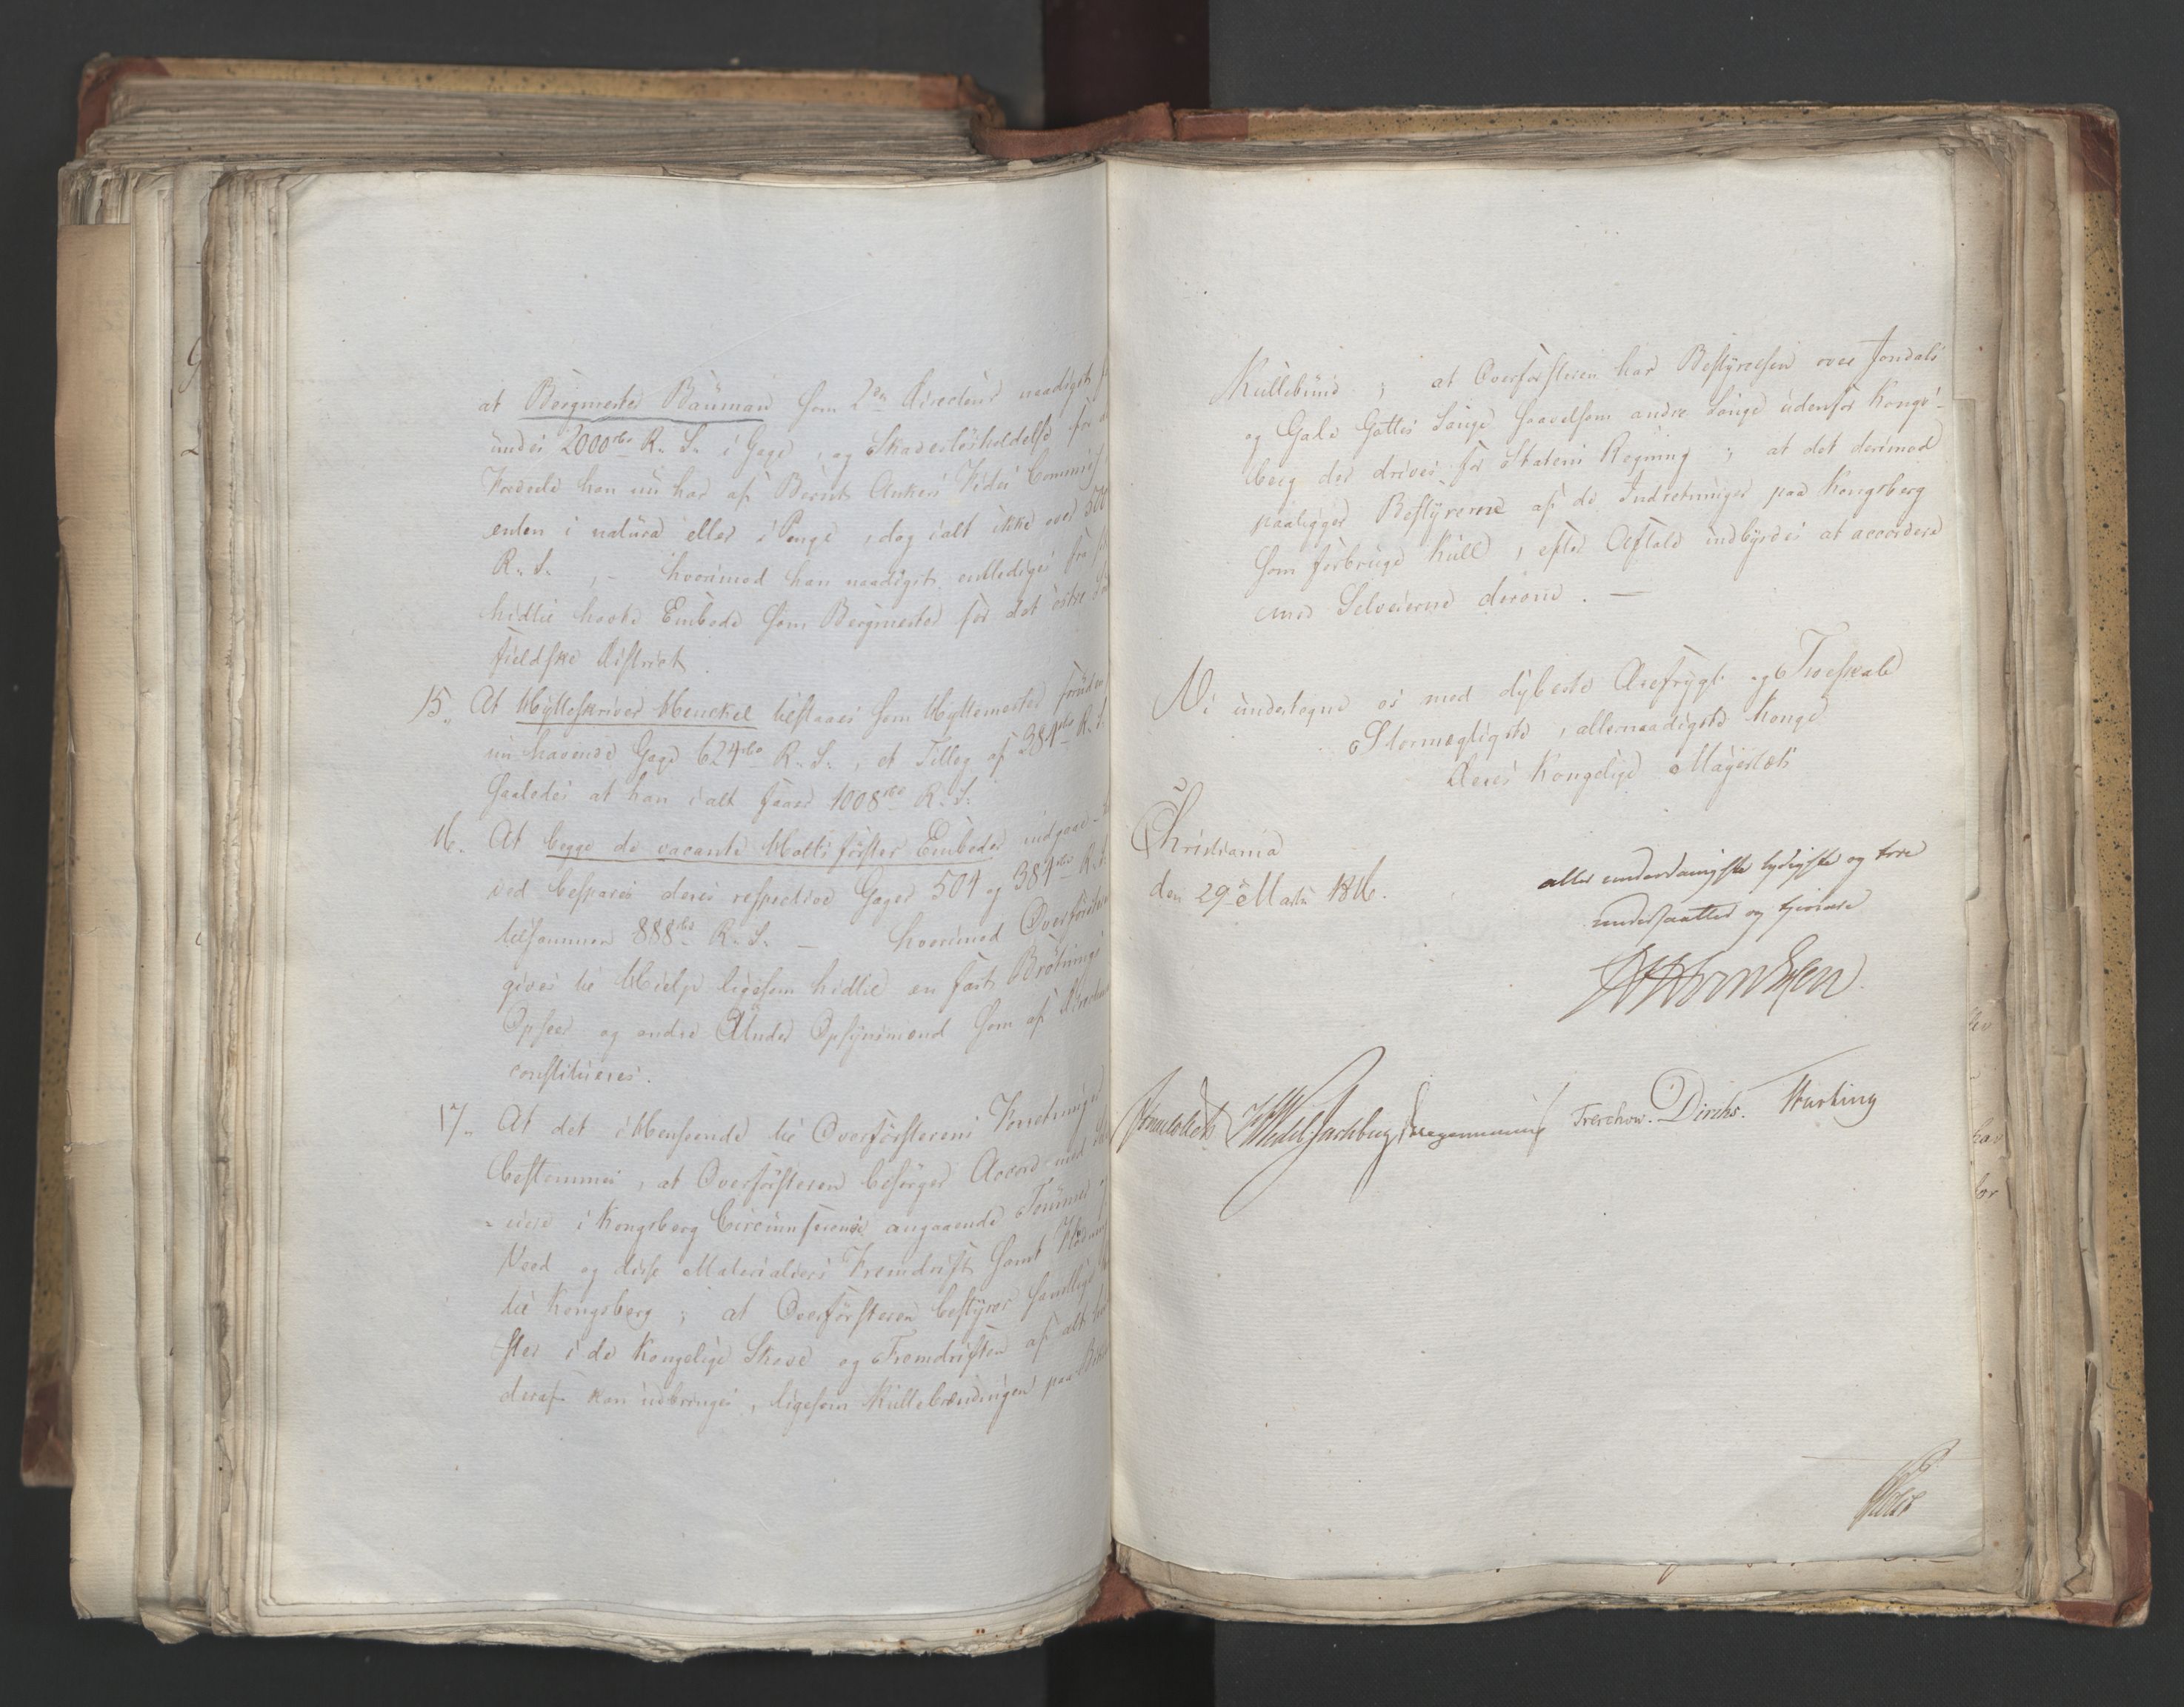 at Bergmester Bauman som 2den Directeur naadigst
undes 2000rbd R. S. i Gage, og Skadesløsholdelse for
Fordeele han nu har af Bernt Ankers Fidei Commis
enten i natura eller i Penge, dog ialt ikke over 500
R. S., – hvorimod han naadigst entlediges fra
hidtil havte Embede som Bergmester for det østre
fieldske District.
15. At Hytteskriver Henckel tilstaaes som Hyttemester foruden
nu havende Gage 624rbd R. S., et Tillæg af 384rbd R. S.
saaledes at han ialt faaer 1008rbd R. S.
16. At begge de vacante Holtsförster Embeder indgaae
ved bespares deres respective Gager 504 og 384rbd R. S.
tilsammen 888rbd R. S. – hvorimod Overförsteren
gives til Hielp ligesom hidtil en fast Brötnings
Opseer og andre Under Opsynsmænd som af Directionen
constitueres.
17. At det i Henseende til Overförsterens Forretninger
bestemmes, at Overförsteren besörger Accord med
eiere i Kongsberg Circumference angaaende Tömmer
Veed og disse Materialiers Fremdrift samt Flödning
til Kongsberg; at Overförsteren bestyrer samtlige
ster i de Kongelige Skove og Fremdriften af alt
deraf kan udbringes, ligesom Kullebrændingen paa
Kullebund; at Overförsteren har Bestyrelsen over Jondals
og Gale Gottes Sauge saavelsom andre Sauge udenfor Kongs-
berg der drives for Statens Regning; at det derimod
paaligger Bestyrerne af de Indretninger paa Kongsberg
som forbruge Kull, efter Aftale indbyrdes at accordere
med Selveierne derom. –
Vi undertegne os med dybeste Ærefrygt og Troeskab
Stormægtigste, allernaadigste Konge
Deres Kongelige Mayestæts
Christiania
den 29 Marts 1816.
aller underdanigste lydigste og troe
undersaatter og tjenere
Sommerhielm HWedel-Jarlsberg Hegermann Treschow. Diriks. Motzfeldt